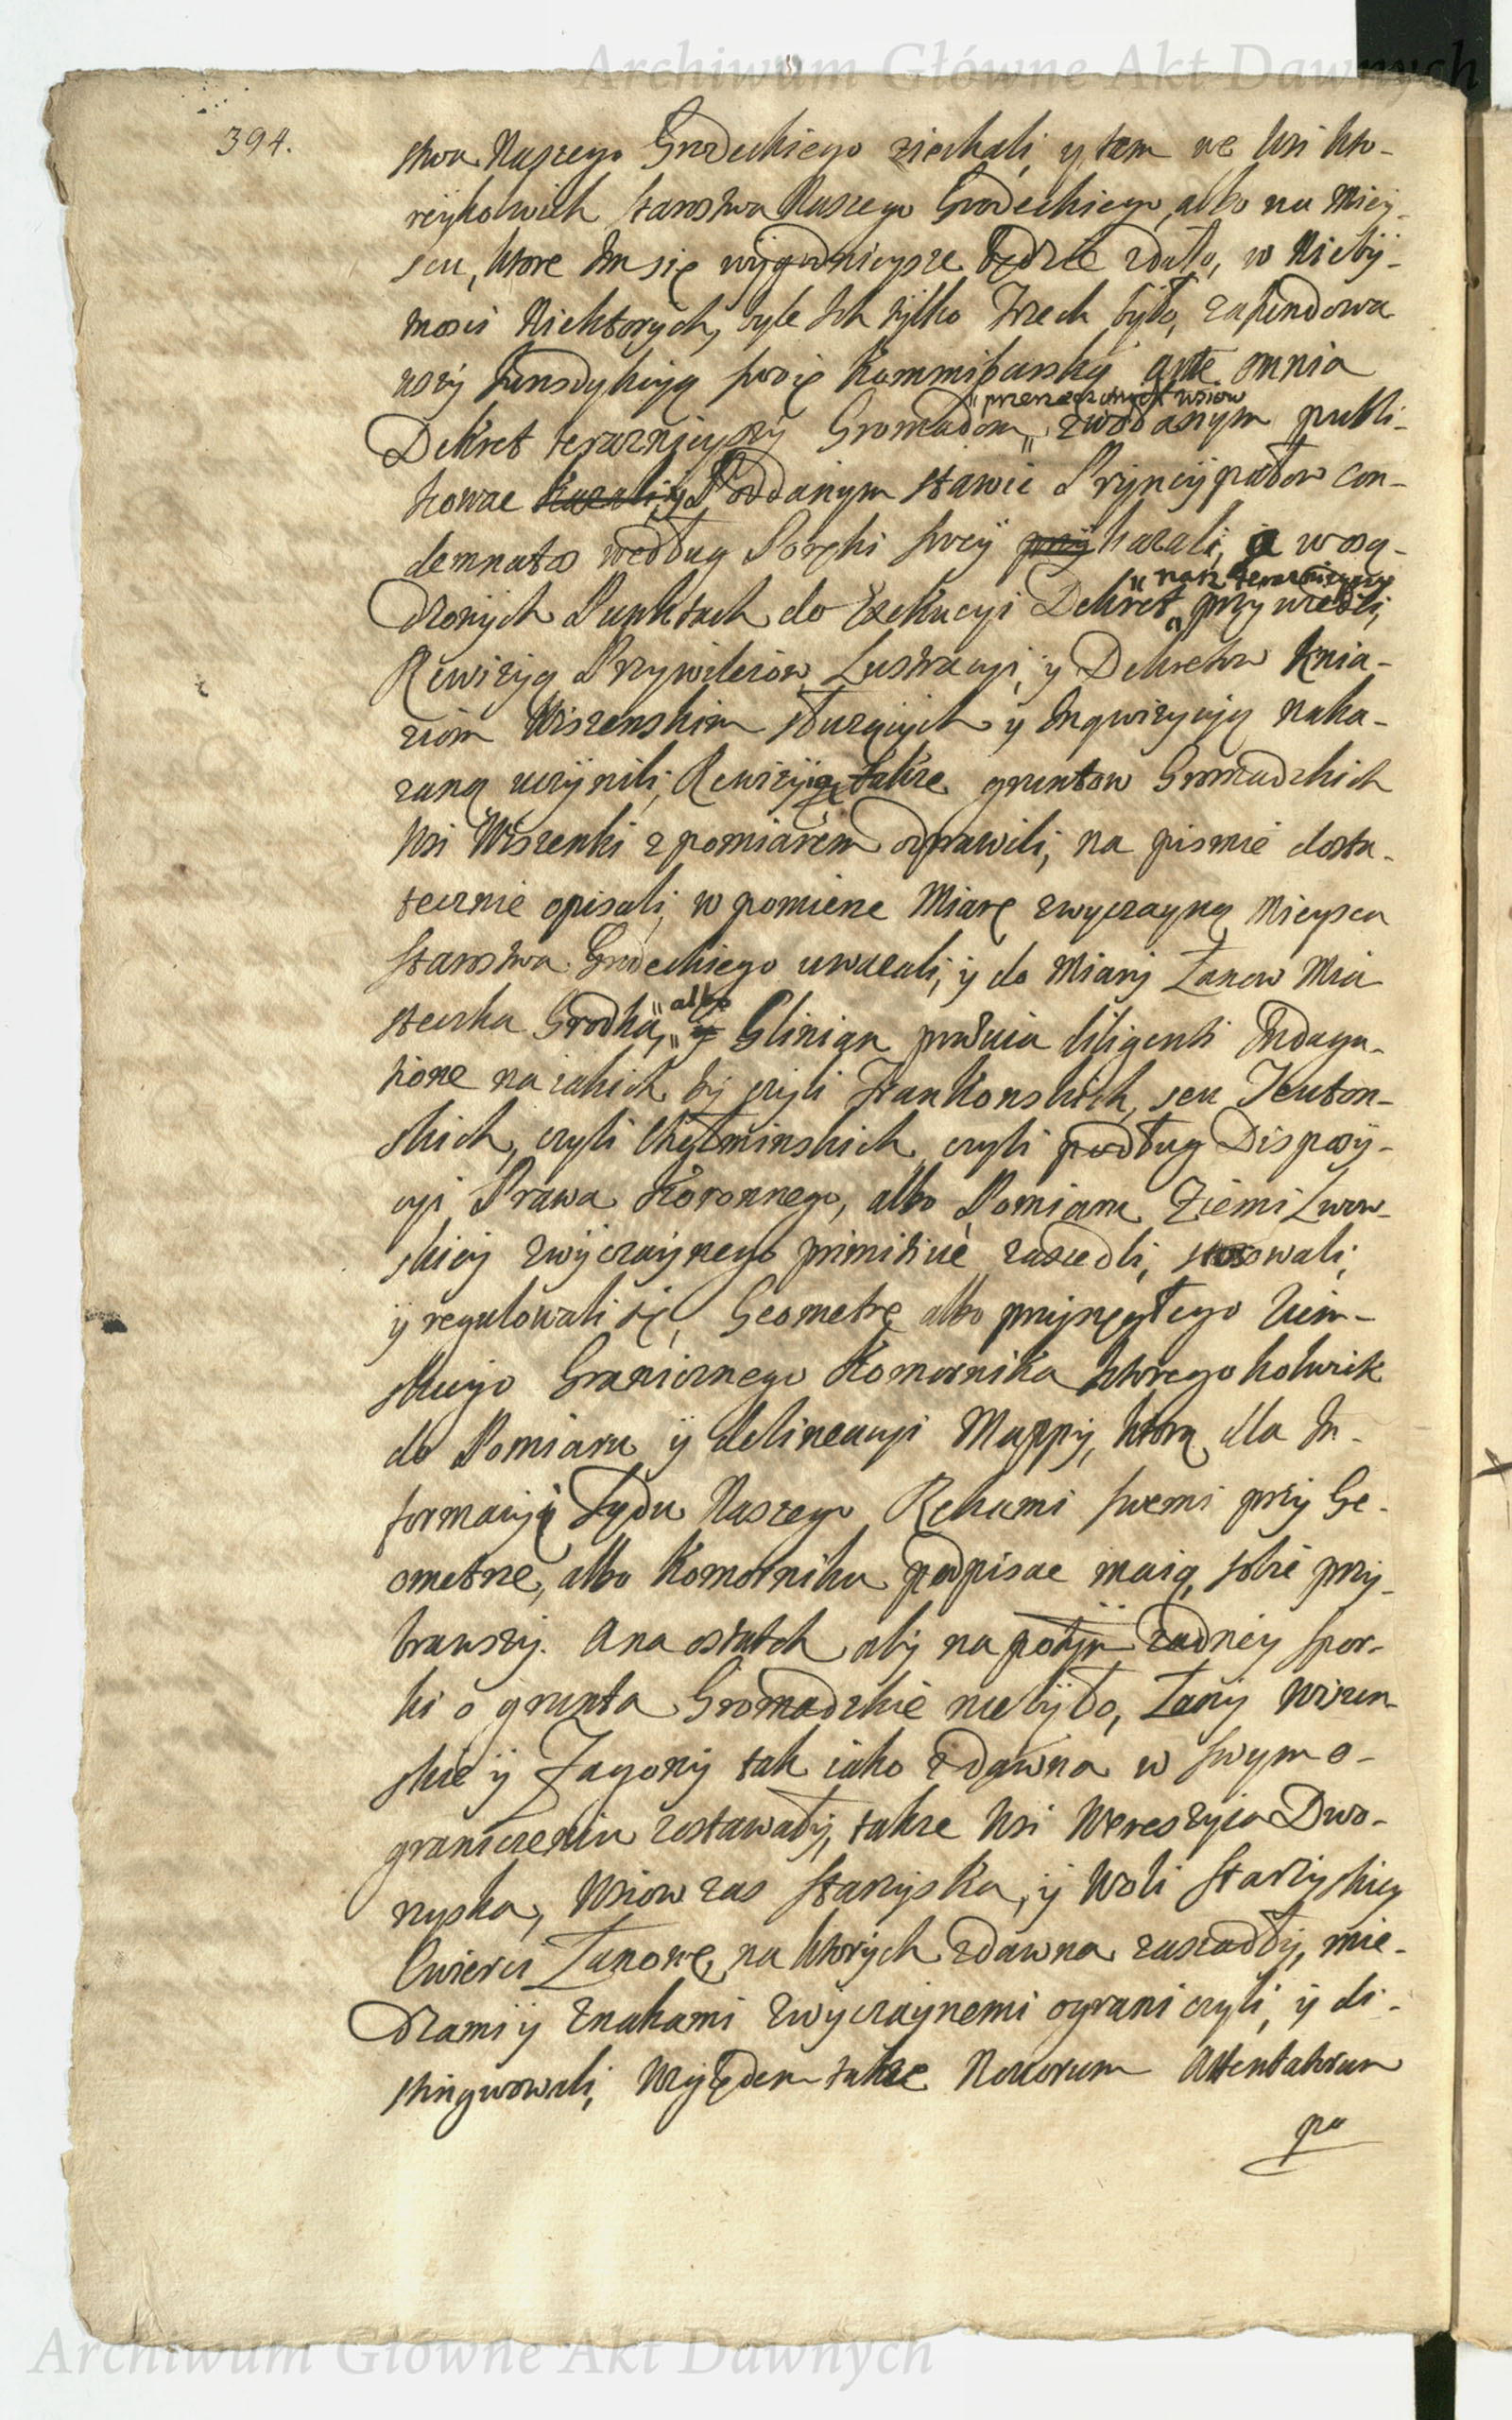 Archiwum Główne Akt Dawnych
394.
stwa Naszego Grodeckiego ziechali, y tam we Wsi Kto-
rejkolwiek Starostwa Naszego Grodeckiego, albo na Miey-
scu, ktore Im się wÿgodnieysze będzie zdało, w Niebÿ-
tnosci Niektorych, byle Ich tylko Trzech było, zafundowa
wszÿ Jurisdykcÿą swoię Kommissarską ante omnia
"przerzeczonych wsiow
Dekret terazniejszÿ Gromadom, zwołanym publi-
kowac kazali, y Poddanym stawic Pryncÿpałow con-
demnatos według Poręki swey przÿkazali, a w osą-
" nasz terazniejszy
dzonÿch Punktach do Exekucÿi Dekret przÿwiedli,
Rewizÿą Przywileiow, Lustracÿi, ÿ Dekretow Knia-
ziom Wiszenskim słuzącÿch y Inqwizycÿą naka-
zaną uczÿnili, Rewizÿą także gruntow Gromadzkich
Wsi Wiszenki z pomiarem odprawili, na pismie dosta-
tecznie opisali, w pomierze Miarę zwyczayną Mieysca
Starostwa Grodeckiego uwazali, ÿ do Miarÿ Łanow Mia
" albo
steczka Grodka, ÿ Glinian prævia diligenti Indaga-
tione na iakich bÿ czÿli Frankonskich, seu Teuton-
skich, czyli Chełminskich, czyli podług Dispozÿ-
cyi Prawa Koronnego, albo Pomiaru Ziemi Lwow-
skiey zwÿczaÿnego primitive zasiedli, stosowali,
ÿ regulowali się, Geometrę albo przÿsięgłego Ziem-
skiego Granicznego Komornika ktoregokolwiek
do Pomiaru ÿ delineacyi Mappÿ, ktorą dla In-
formacÿi Sądu Naszego Rękami swemi przÿ Ge-
ometrze, albo Komorniku podpisac maią, sobie przÿ-
brawszÿ. A na ostatek abÿ na potÿm zadnej spor-
ki o grunta Gromadzkie niebÿło, Łanÿ Wiszen-
skie ÿ Zagonÿ tak iako zdawna w swym o-
graniczeniu zostawałÿ, także Wsi Wereszÿca Dwo-
rzyska, Wsiow zas Starzyska, ÿ Woli Starzÿskiey
Cwierci Łanowe, na ktorÿch zdawna zasiadłÿ, mie-
dzami y Znakami zwÿczaynemi ograniczyli, ÿ di-
stingwowali, Względem także Novorum Attentatorum
po
Archiwum Główne Akt Dawnych